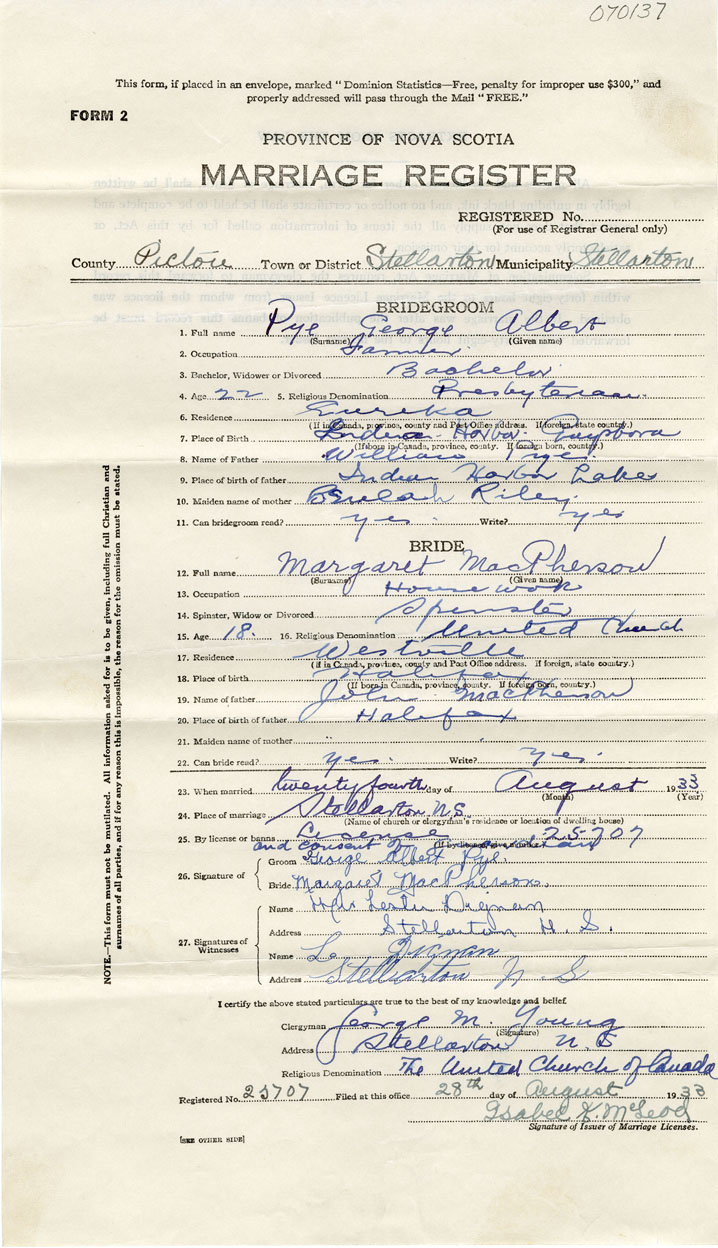 070137
This form, if placed in an envelope, marked "Dominion Statistics—Free, penalty for improper use $300," and
properly addressed will pass through the Mail "FREE."
FORM 2
PROVINCE OF NOVA SCOTIA
MARRIAGE REGISTER
REGISTERED No.
(For use of Registrar General only)
County Pictou Town or District Stellarton Municipality Stellarton
BRIDEGROOM
1. Full name Pye George Albert
(Surname) (Given name)
2. Occupation Farmer
3. Bachelor, Widower or Divorced Bachelor
4. Age 22 5. Religious Denomination Presbyterian
6. Residence Eureka
(If in Canada, province, county and Post Office address. If foreign, state country.)
7. Place of Birth Indian Harbor Guysboro
(If born in Canada, province, county. If foreign born, country.)
8. Name of Father William Pye
9. Place of birth of father Indian Harbor Lakes
10. Maiden name of mother Beulah Riley
11. Can bridegroom read? yes Write? yes
BRIDE
12. Full name Margaret MacPherson
(Surname) (Given name)
13. Occupation Housework
14. Spinster, Widow or Divorced Spinster
15. Age 18. 16. Religious Denomination United Church
17. Residence Westville
(If in Canada, province, county and Post Office address. If foreign, state country.)
18. Place of birth Halifax
(If born in Canada, province, county. If foreign born, country.)
19. Name of father John MacPherson
20. Place of birth of father Halifax
21. Maiden name of mother
22. Can bride read? yes. Write? yes.
23. When married twenty fourth day of August 1933
(Month) (Year)
24. Place of marriage Stellarton N.S.
(Name of church or clergyman's residence or location of dwelling house)
25. By license or banns License 25707
and consent of
(If by license give number)
26. Signature of
Groom George Albert Pye.
Bride Margaret MacPherson.
27. Signatures of Witnesses
Name Mrs Leslie Digman
Address Stellarton N.S.
Name Digman
Address Stellarton N S
I certify the above stated particulars are true to the best of my knowledge and belief
Clergyman George M. Young
(Signature)
Address Stellarton N.S
Religious Denomination The United Church of Canada
Registered No. 25707 Filed at this office 28th day of August 1933
Isabel K. McLeod
Signature of Issuer of Marriage Licenses.
[SEE OTHER SIDE]
NOTE.—This form must not be mutilated. All information asked for is to be given, including full Christian and
surnames of all parties, and if for any reason this is impossible, the reason for the omission must be stated.